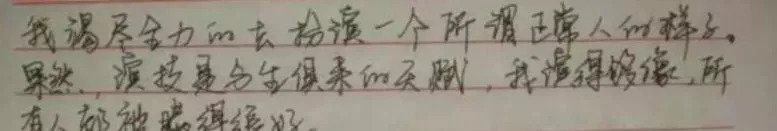 我竭尽全力的去扮演一个所谓正常人的样子。
果然，演技是与生俱来的天赋，我演得够像，所
有人都被瞒得很好.